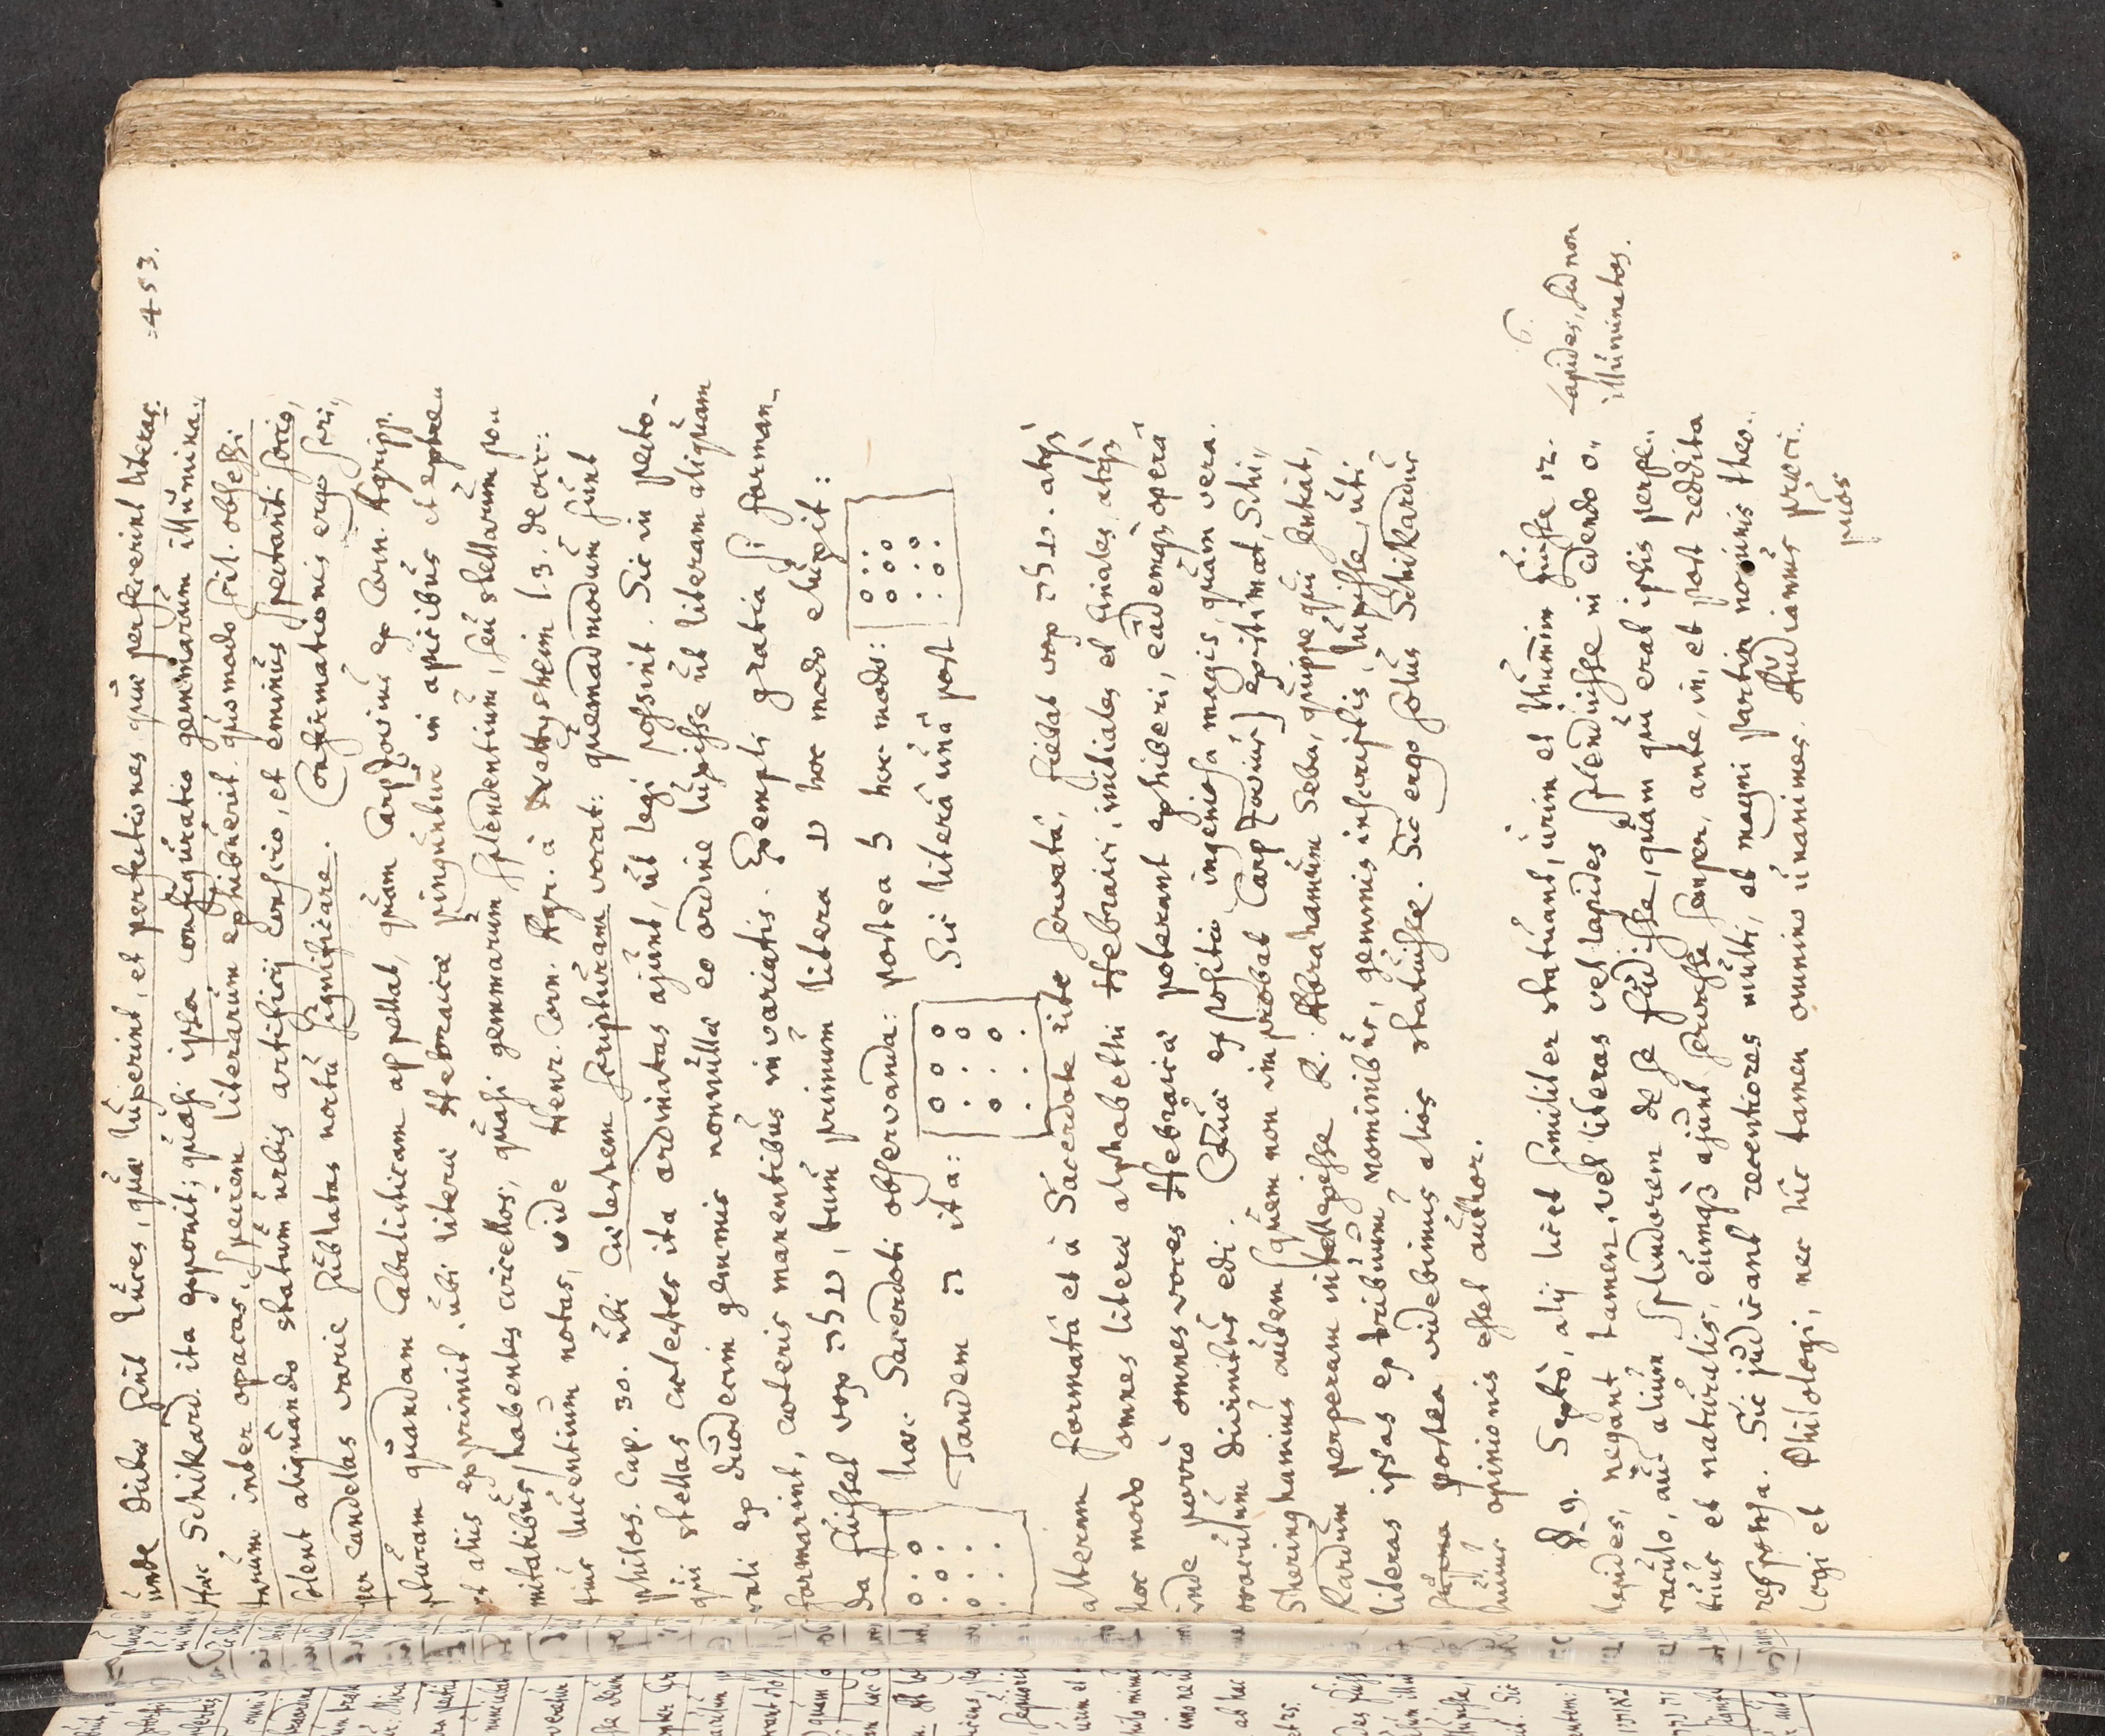 453.
unde dictae sint Luces, quia luxerint, et perfectiones quia perfecerint literas.
Haec Schikard. ita exponit; quasi ipsa configuratio gemmarum illumina,,
tarum inter opacas, speciem literarum exhibuerit. quomodo scil. obsessi
solent aliquando statum urbis artificii conscio, et eminus spectanti socio,
per candelas varie sublatas noctu significare. Confirmationis ergo scri,,
pturam quandam Cabalisticam appellat, quam Carpzovius ex Corn. Agripp.
et aliis exprimit. ubi literae Hebraicae pinguntur in apicibus et extre,,
mitatibus habentes circellos, quasi gemmarum splendentium, seu stellarum po,,
tius lucentium notas, vide Henr. Corn. Agr. à Nettesheim l. 3. de occ:
philos. Cap. 30. ubi Coelestem scripturam vocat: quemadmodum sunt
qui stellas coelestes ita ordinatas ajunt, ut legi possint. Sic in pecto-
rali ex duodecim gemmis nonnullae eo ordine luxisse ut literam aliquam
formarint, coeteris manentibus invariatis. Exempli gratia si forman-
da fuisset vox עלה, tum primum litera ע hoc modo eluxit:
haec Sacerdoti observanda: postea ל hoc modo:
Tandem ה ita: Sic litera una post
alteram formata et à Sacerdote rite servata, fiebat vox עלה. atq;
hoc modo omnes literae alphabethi Hebraici, initiales et finales, atq;
inde porro omnes voces Hebraicae poterant exhiberi, eademq; opera
oraculum divinitus edi. Quae expositio ingeniosa magis, quam vera.
Sheringhamius autem [quem non improbat Carpzovius] existimat, Schi,,
kardum perperam intellexisse R. Abrahamum Seba, quippe qui sentiat,
literas ipsas ex tribuum nominibus, gemmis inscriptis, luxisse, uti
postea videbimus alios statuisse. Sic ergo solus Schikardus
huius opinionis esset author.
§. 9. Sexto, alij licet similiter statuant, urim et Thummim fuisse 12.
lapides, negant tamen, vel literas vel lapides splenduisse in edendo o,,
raculo, aut alium splendorem de se fudisse, quam qui erat ipsis perpe,,
tuus et naturalis, eumq; ajunt servasse semper, ante, in, et post reddita
responsa. Sic judicant recentiores multi, et magni partim nominis theo,,
logi et Philologi, nec hic tamen omnino unanimes. Audiamus praeci,,
puos
6.
Lapides, sed non
illuminatos.